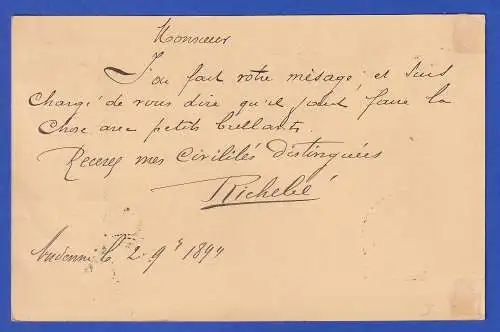 Monsieur
J'ai fait votre mésage, et suis
chargé de vous dire qu'il faut faire la
chose avec petits brellants.
Recevez mes Civilités distinguées
Richebé
le 2 9r 1894